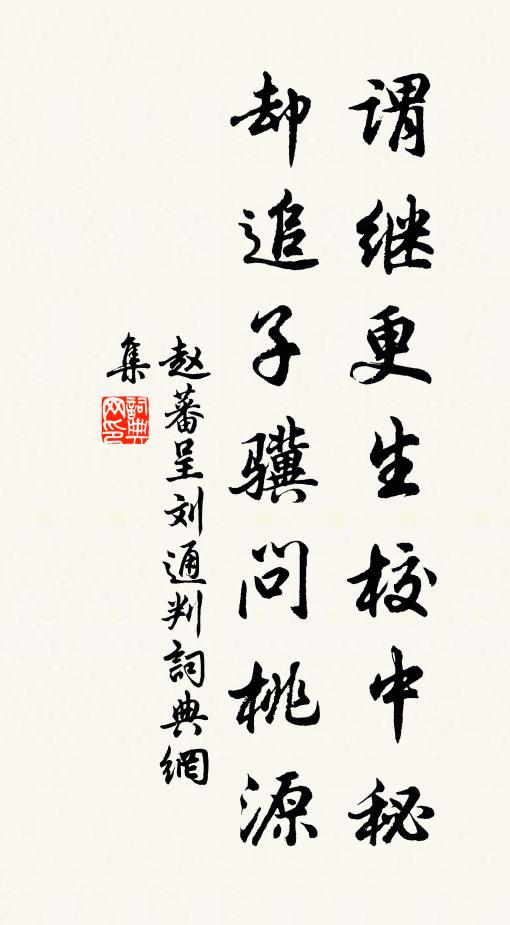 谓继更生校中秘
却追子骥问桃源
赵蕃呈刘通判詞典網
集
詞典
网印